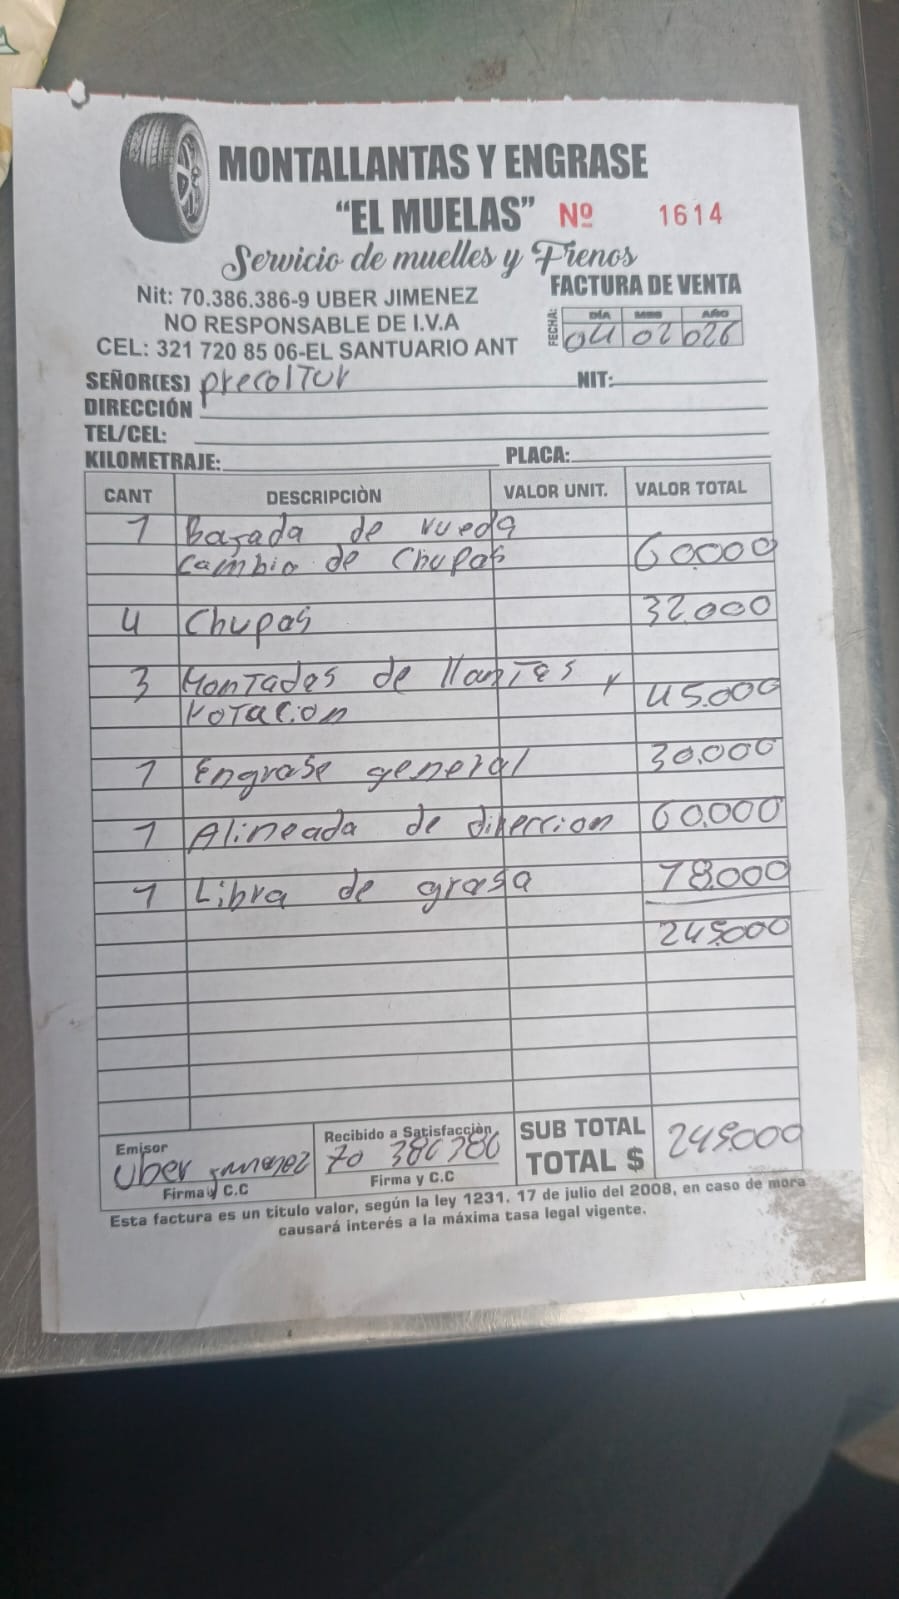 MONTALLANTAS Y ENGRASE
"EL MUELAS" Nº 1614
Servicio de muelles y Frenos
Nit: 70.386.386-9 UBER JIMENEZ
FACTURA DE VENTA
NO RESPONSABLE DE I.V.A
CEL: 321 720 85 06-EL SANTUARIO ANT
FECHA: DÍA MES AÑO
04 02 026
SEÑOR(ES) precoltur NIT:
DIRECCIÓN
TEL/CEL:
KILOMETRAJE: PLACA:
CANT DESCRIPCIÒN VALOR UNIT. VALOR TOTAL
1 Bajada de rueda
cambio de Chupas 60.000
4 Chupas 32.000
3 Montadas de llantas y
rotacion 45.000
1 Engrase general 30.000
1 Alineada de direccion 60.000
1 Libra de grasa 18.000
245.000
Emisor
Uber Jimenez
Firma y C.C
Recibido a Satisfacciòn
70 386 386
Firma y C.C
SUB TOTAL
TOTAL $ 245.000
Esta factura es un titulo valor, según la ley 1231. 17 de julio del 2008, en caso de mora
causará interés a la máxima tasa legal vigente.